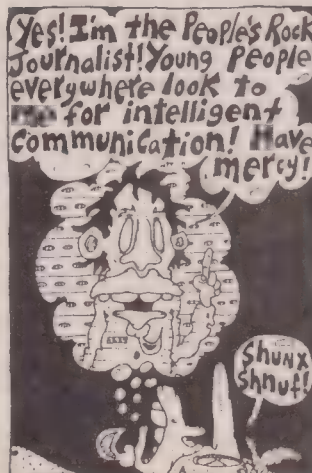 Yes! I'm the People's Rock
Journalist! Young People
everywhere look to
for intelligent
communication! Have
mercy!
shunx
shnuf!